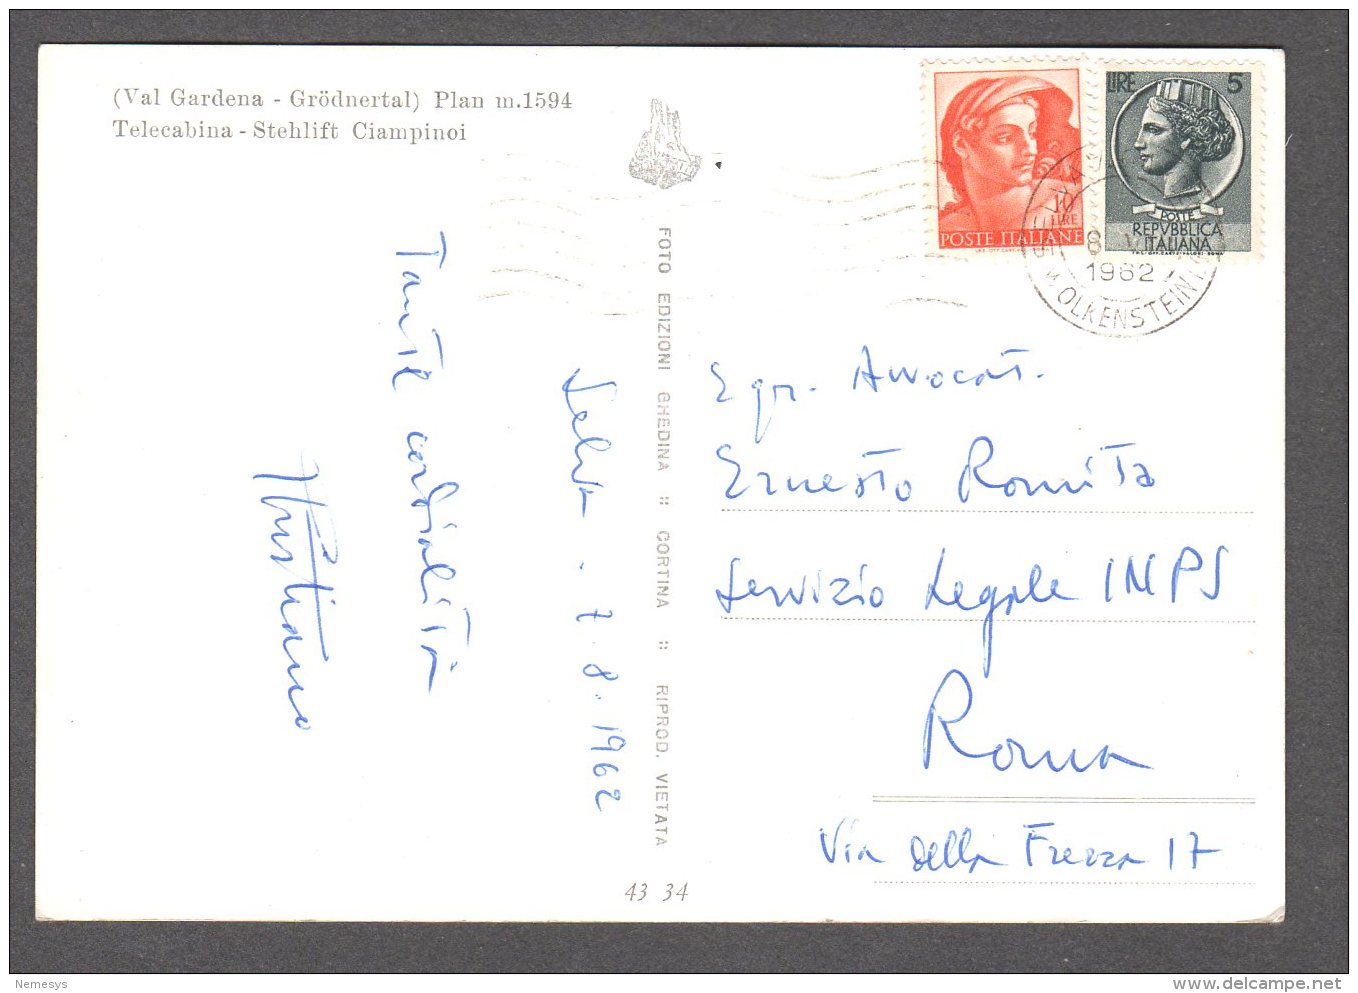 (Val Gardena - Grödnertal) Plan m.1594
Telecabina - Stehlift Ciampinoi
10
LIRE
POSTE ITALIANE
LIRE 5
POSTE
REPVBBLICA
ITALIANA
8
1962
WOLKENSTEIN
FOTO EDIZIONI GHEDINA :: CORTINA :: RIPROD. VIETATA
Selva . 7.8.1962
Tante cordialità
Egr. Avvocat.
Ernesto Romita
Servizio Legale INPS
Roma
Via della Frezza 17
43 34
Nemesys
delcampe.net